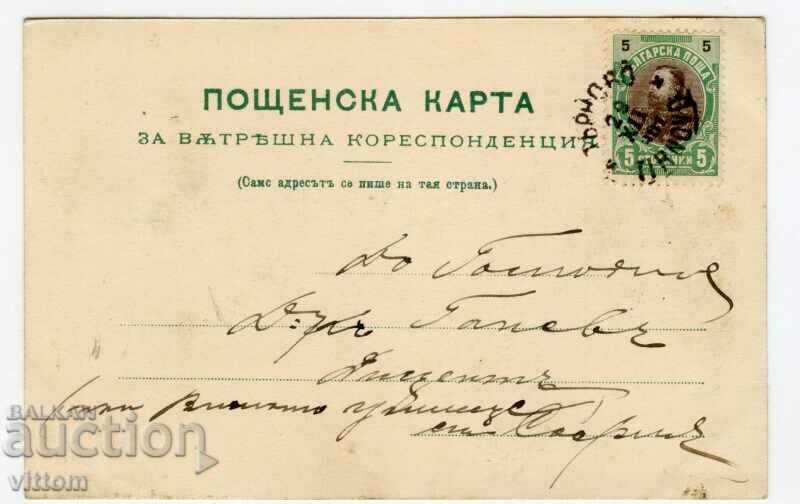 5 5
БЪЛГАРСКА ПОЩА
5 СТОТИНКИ 5
ТЪРНОВО
TIRNOVA
ПОЩЕНСКА КАРТА
ЗА ВѪТРѢШНА КОРЕСПОНДЕНЦИЯ
(Само адресътъ се пише на тая страна.)
До Господина
Д-ръ Ганевъ
Доцентъ
при училище
София
BALKAN
auction
vittom